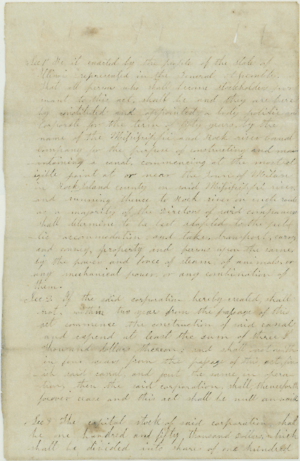 Sec 1. Be it enacted by the people of the State of
Illinois represented in the General Assembly
That all persons who shall become stockholders pur-
suant to this act, shall be and they are hereby
constituted and appointed a body politic and
corporate in the by the
name of the Mississippi and Rock river canal
company for the purpose of constructing and main-
taining a canal, commencing at the most el-
igible point at or near the town of
in Rock Island county on said Mississippi river
and running thence to Rock river on such route
as a majority of the directors of said company
shall determine to be best adapted to the pub-
lic accommodation and take, transport, carry
and convey, property and persons upon the same
by the power and force of steam of animals, or
any mechanical power, or any combination of
them.
Sec 2. If the said corporation hereby created shall
not, within two years from the passage of this
act commence the construction of said canal
and expend at least the sum of three
thousand dollars thereon, and shall not with-
in years from the passage of this act
said canal and put the same in opera-
tion, then the said corporation shall thenceforth
forever cease and this act shall be null and void
Sec 3 The capital stock of said corporation shall
be one hundred and fifty thousand dollars, which
shall be divided into shares of one hundred